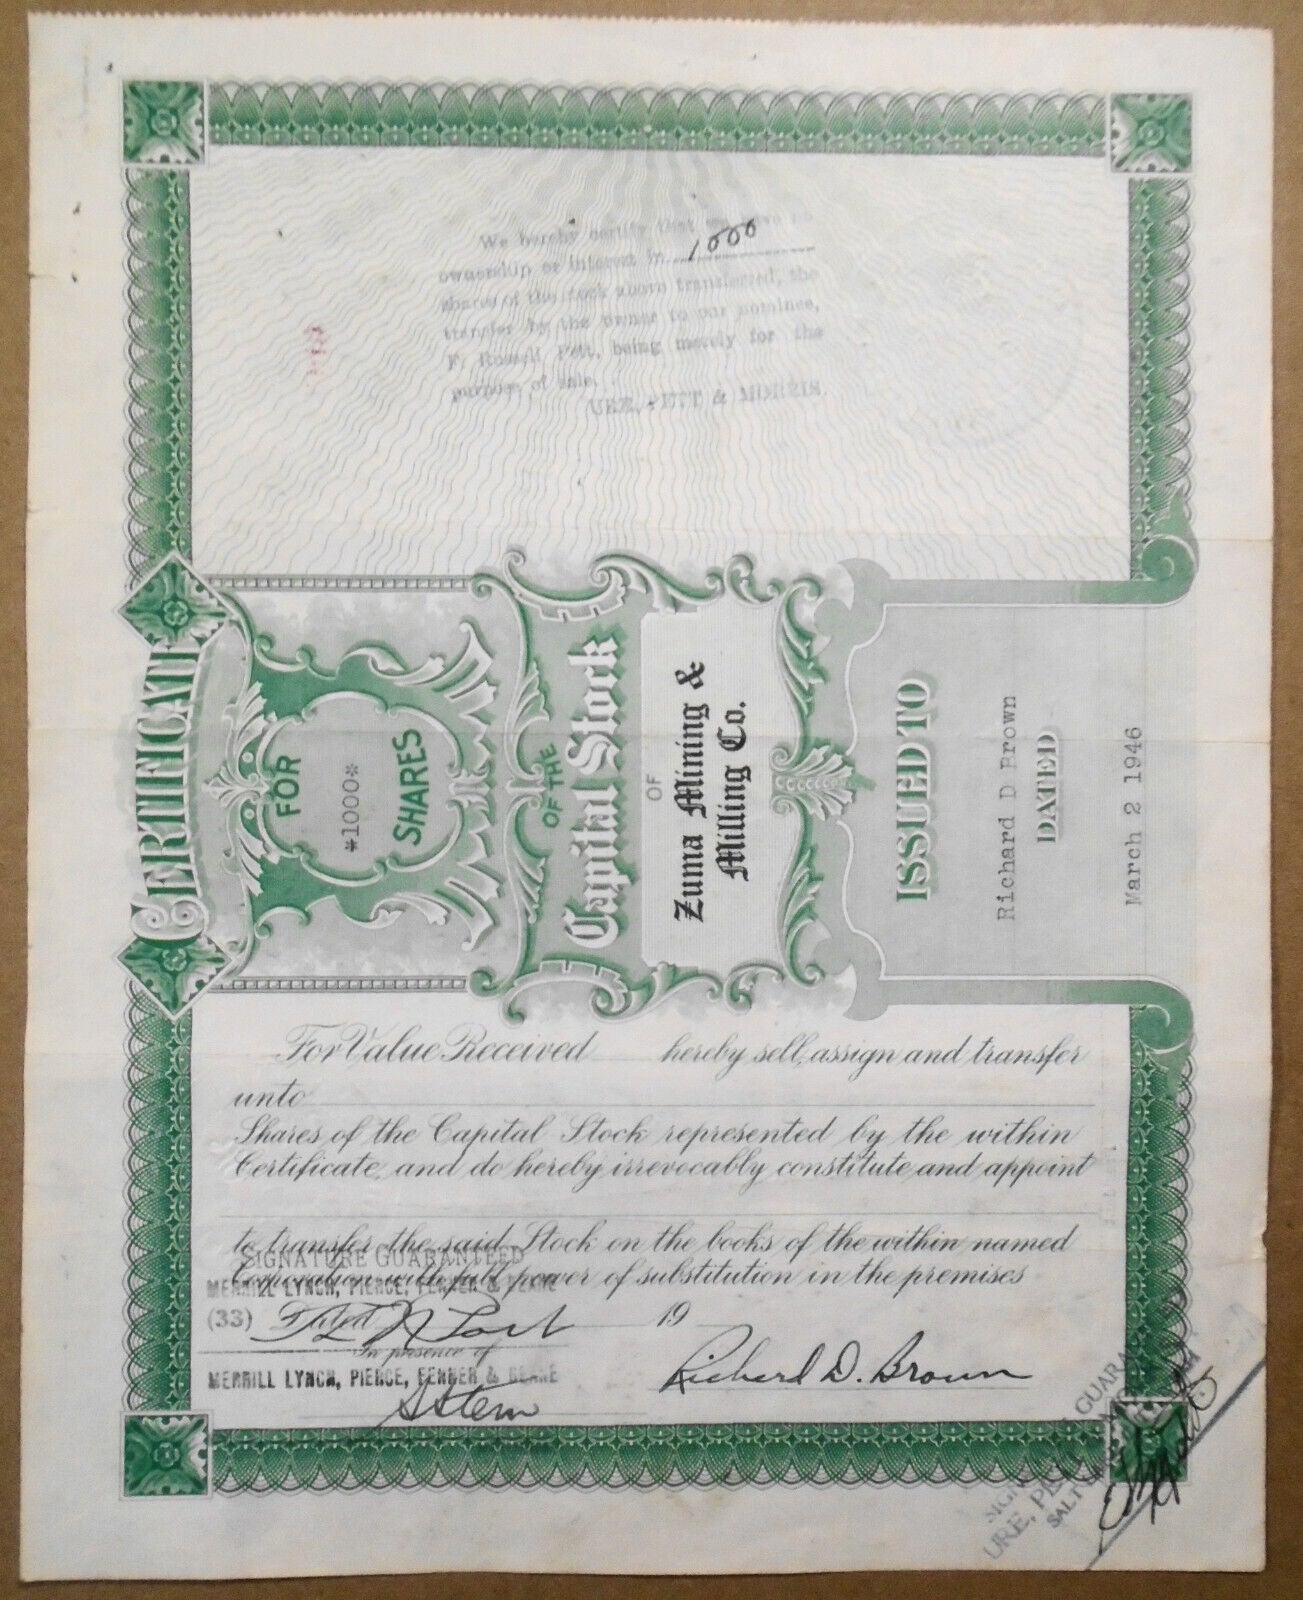 We hereby certify that we have no
ownership or interest in 1000
shares of the stock above transferred, the
transfer by the owner to our nominee,
F. Russell Pett, being merely for the
purpose of sale.
URE, PETT & MORRIS.
CERTIFICATE
FOR
*1000*
SHARES
OF THE
Capital Stock
OF
Zuma Mining &
Milling Co.
ISSUED TO
Richard D Brown
DATED
March 2 1946
For Value Received hereby sell, assign and transfer
unto
Shares of the Capital Stock represented by the within
Certificate, and do hereby irrevocably constitute and appoint
to transfer the said Stock on the books of the within named
Corporation with full power of substitution in the premises
SIGNATURE GUARANTEED
MERRILL LYNCH, PIERCE, FENNER & BEANE
(33) Dated 19
In presence of
MERRILL LYNCH, PIERCE, FENNER & BEANE
Richard D. Brown
SIGNATURE GUARA
URE, PETT & MO
SALT